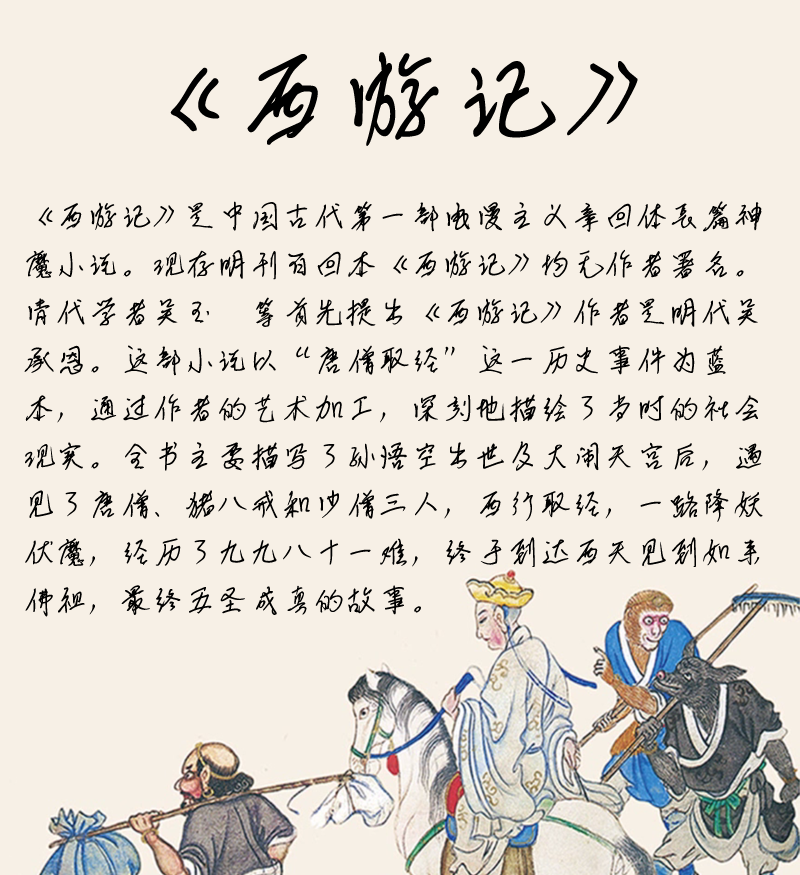 《西游记》
《西游记》是中国古代第一部浪漫主义章回体长篇神
魔小说。现存明刊百回本《西游记》均无作者署名。
清代学者吴玉 等首先提出《西游记》作者是明代吴
承恩。这部小说以“唐僧取经”这一历史事件为蓝
本，通过作者的艺术加工，深刻地描绘了当时的社会
现实。全书主要描写了孙悟空出世及大闹天宫后，遇
见了唐僧、猪八戒和沙僧三人，西行取经，一路降妖
伏魔，经历了九九八十一难，终于到达西天见到如来
佛祖，最终五圣成真的故事。